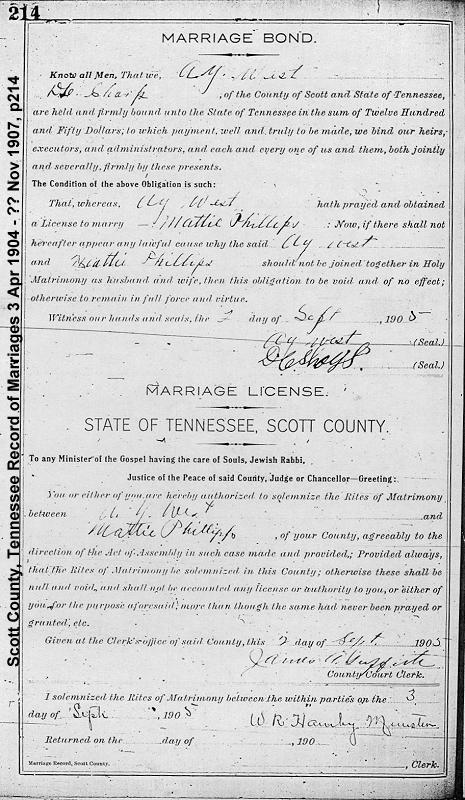 214
Scott County, Tennessee Record of Marriages 3 Apr 1904 - ?? Nov 1907, p214
MARRIAGE BOND.
Know all Men, That we, A. Y. West
D. C. Sharp, of the County of Scott and State of Tennessee,
are held and firmly bound unto the State of Tennessee in the sum of Twelve Hundred
and Fifty Dollars; to which payment, well and truly to be made, we bind our heirs,
executors, and administrators, and each and every one of us and them, both jointly
and severally, firmly by these presents.
The Condition of the above Obligation is such:
That, whereas, Ay West hath prayed and obtained
a License to marry Mattie Phillips : Now, if there shall not
hereafter appear any lawful cause why the said Ay West
and Mattie Phillips should not be joined together in Holy
Matrimony as husband and wife, then this obligation to be void and of no effect;
otherwise to remain in full force and virtue.
Witness our hands and seals, the 2 day of Sept, 1905
Ay West (Seal.)
(Seal.)
MARRIAGE LICENSE.
STATE OF TENNESSEE, SCOTT COUNTY.
To any Minister of the Gospel having the care of Souls, Jewish Rabbi,
Justice of the Peace of said County, Judge or Chancellor—Greeting:
You or either of you are hereby authorized to solemnize the Rites of Matrimony
between A. Y. West and
Mattie Phillips, of your County, agreeably to the
direction of the Act of Assembly in such case made and provided; Provided always,
that the Rites of Matrimony be solemnized in this County; otherwise these shall be
null and void, and shall not be accounted any license or authority to you, or either of
you, for the purpose aforesaid, more than though the same had never been prayed or
granted, etc.
Given at the Clerk's office of said County, this 2 day of Sept. 1905
James
County Court Clerk.
I solemnized the Rites of Matrimony between the within parties on the 3
day of Sept, 1905 W R Hamby Minister
Returned on the day of , 190
Marriage Record, Scott County. , Clerk.